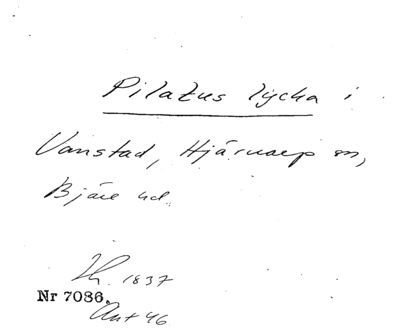 Pilatus lycka i
Vanstad, Hjärnarp sn,
Bjäre hd.
Th. 1837
Nr 7086.
Ant 46